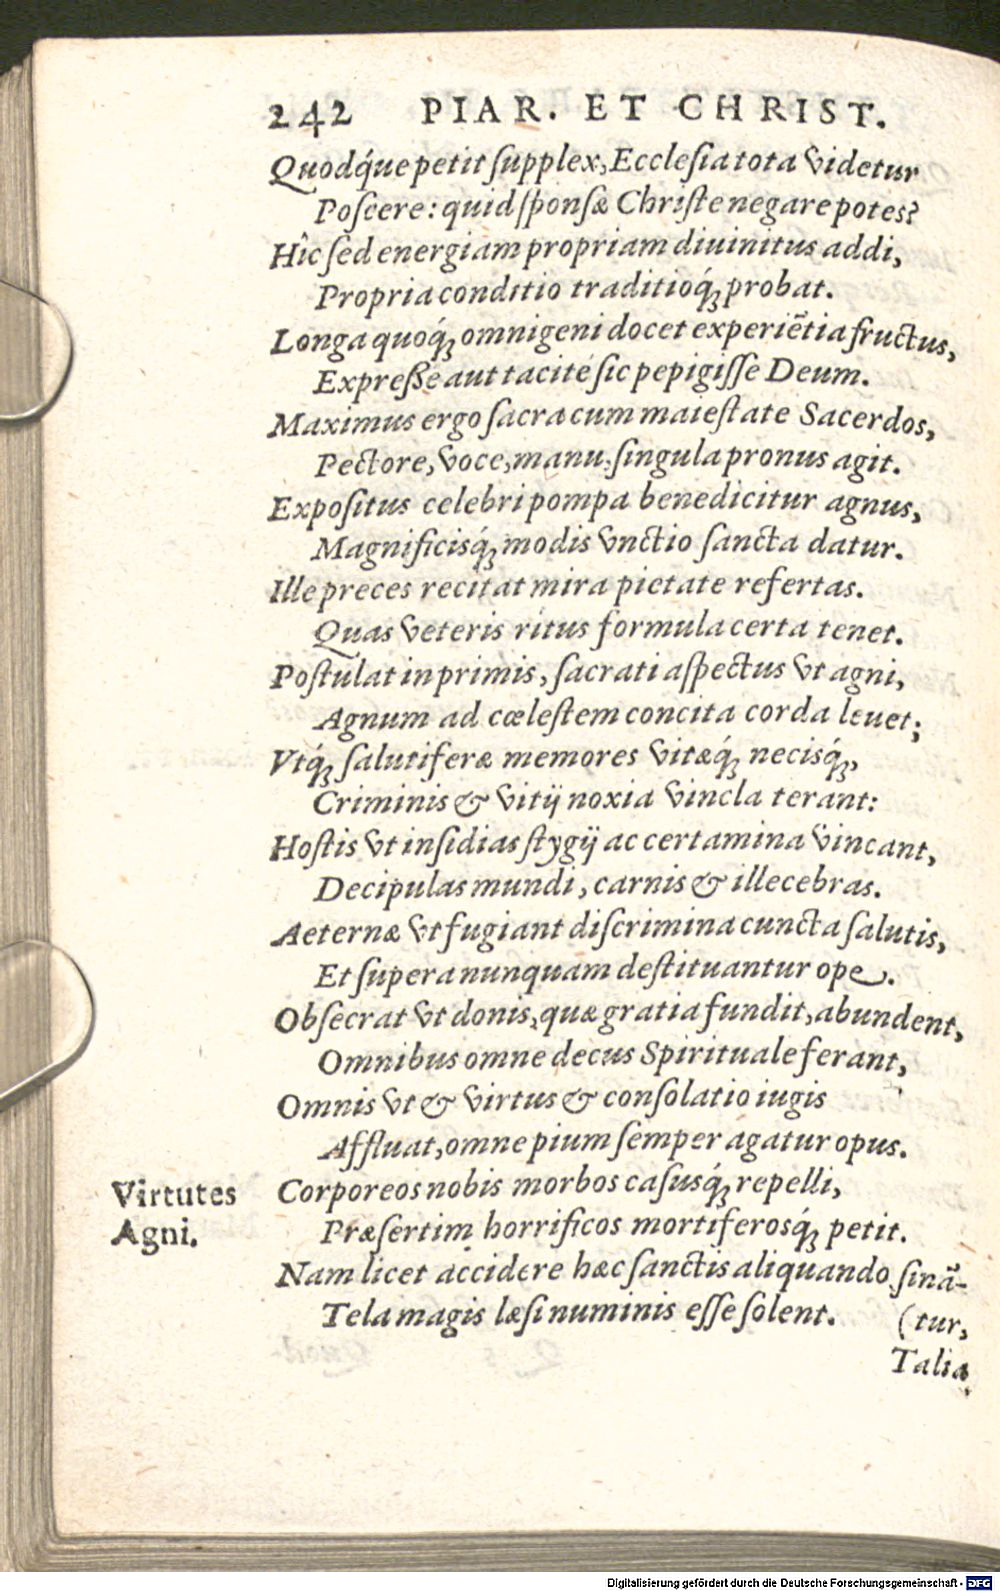 242 PIAR. ET CHRIST.
Quodq́ue petit ſupplex, Eccleſia tota videtur
Poſcere: quid ſponſæ Chriſte negare potes?
Hîc ſed energiam propriam diuinitus addi,
Propria conditio traditioq́ꝫ probat.
Longa quoq́ꝫ omnigeni docet experiẽtia fructus,
Expreßè aut tacitè ſic pepigiſſe Deum.
Maximus ergo ſacra cum maieſtate Sacerdos,
Pectore, voce, manu, ſingula pronus agit.
Expoſitus celebri pompa benedicitur agnus,
Magnificisq́ꝫ modis vnctio ſancta datur.
Ille preces recitat mira pietate refertas.
Quas veteris ritus formula certa tenet.
Poſtulat inprimis, ſacrati aſpectus vt agni,
Agnum ad cœleſtem concita corda leuet;
Vtq́ꝫ ſalutiferæ memores vitæq́ꝫ necisq́ꝫ,
Criminis & vitij noxia vincla terant:
Hoſtis vt inſidias ſtygij ac certamina vincant,
Decipulas mundi, carnis & illecebras.
Aeternæ vt fugiant diſcrimina cuncta ſalutis,
Et ſupera nunquam deſtituantur ope.
Obſecrat vt donis, quæ gratia fundit, abundent,
Omnibus omne decus Spirituale ferant,
Omnis vt & virtus & conſolatio iugis
Affluat, omne pium ſemper agatur opus.
Virtutes Agni.
Corporeos nobis morbos casuſq́ꝫ repelli,
Præſertim horrificos mortiferosq́ꝫ petit.
Nam licet accidere hæc ſanctis aliquando ſinã-
Tela magis læſi numinis eſſe ſolent. (tur,
Talia
Digitalisierung gefördert durch die Deutsche Forschungsgemeinschaft - DFG